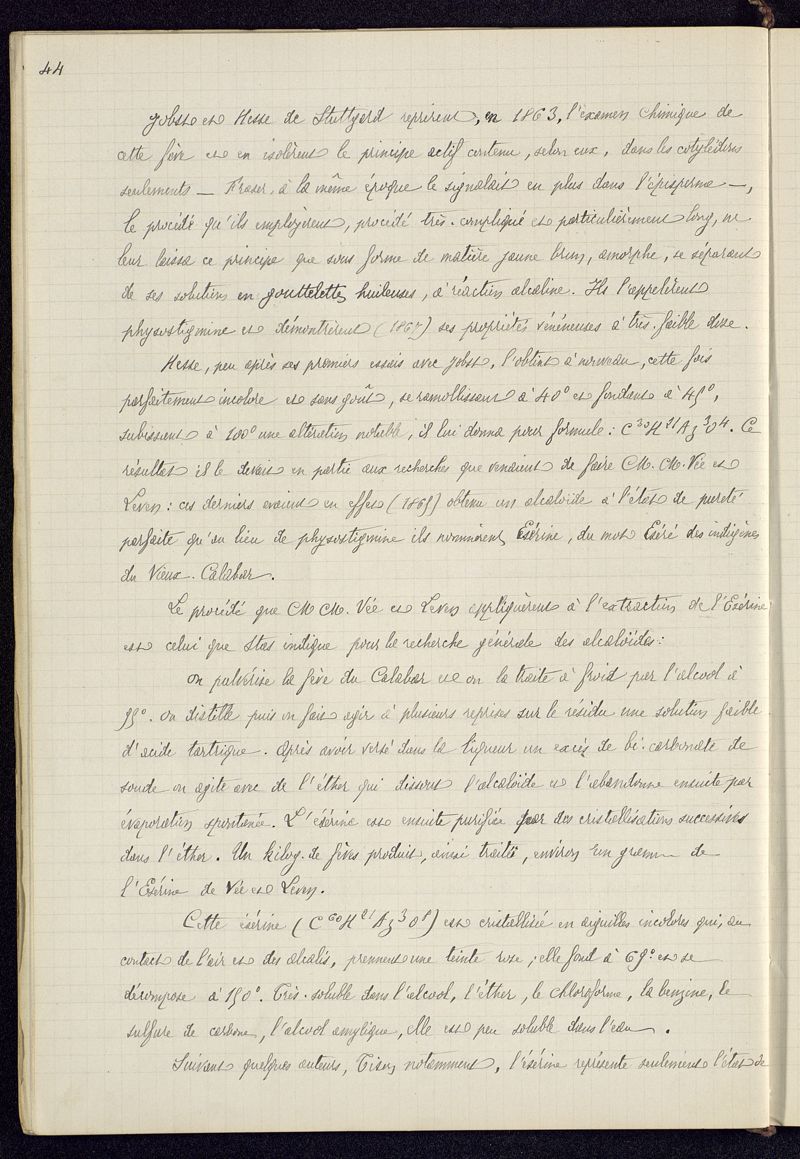 44
Jobst et Hesse de Stuttgard reprirent, en 1863, l'examen chimique de
cette fève et en isolèrent le principe actif contenu, selon eux, dans les cotylédons
seulements — Fraser, à la même époque le signalait en plus dans l'épisperme —,
le procédé qu'ils employèrent, procédé très-compliqué et particulièrement long, ne
leur laissa ce principe que sous forme de matière jaune brun, amorphe, se séparant
de ses solutions en gouttelettes huileuses, à réaction alcaline. Ils l'appelèrent
physostigmine et démontrèrent ses propriétés vénéneuses à très-faible dose.
Hesse, peu après ses premiers essais avec Jobst, l'obtint à nouveau, cette fois
parfaitement incolore et sans goût, se ramollissant à 40° et fondant à 45°,
subissant à 100° une altération notable, il lui donna pour formule: C³⁰H²¹Az³O⁴. Ce
résultat il le devait en partie aux recherches que venaient de faire M.M. Vée et
Leven: ces derniers avaient en effet (1865) obtenu un alcaloïde à l'état de pureté
parfaite qu'au lieu de physostigmine ils nommèrent Esérine, du mot Eséré des indigènes
du Vieux-Calabar.
Le procédé que MM. Vée et Leven appliquèrent à l'extraction de l'Esérine
est celui que Stas indique pour la recherche générale des alcaloïdes:
On pulvérise la fève du Calabar et on la traite à froid par l'alcool à
95°. On distille puis on fait agir à plusieurs reprises sur le résidu une solution faible
d'acide tartrique. Après avoir versé dans la liqueur un excès de bi-carbonate de
soude on agite avec de l'éther qui dissout l'alcaloïde et l'abandonne ensuite par
évaporation spontanée. L'ésérine est ensuite purifiée par des cristallisations successives
dans l'éther. Un kilog. de fèves produit, ainsi traité, environ un gramme de
l'Esérine de Vée et Leven.
Cette ésérine est cristallisée en aiguilles incolores qui, au
contact de l'air et des alcalis, prennent une teinte rose; elle fond à 69° et se
décompose à 150°. Très-soluble dans l'alcool, l'éther, le chloroforme, la benzine, le
sulfure de carbone, l'alcool amylique, elle est peu soluble dans l'eau.
Suivant quelques auteurs, notamment, l'ésérine représente seulement l'état de